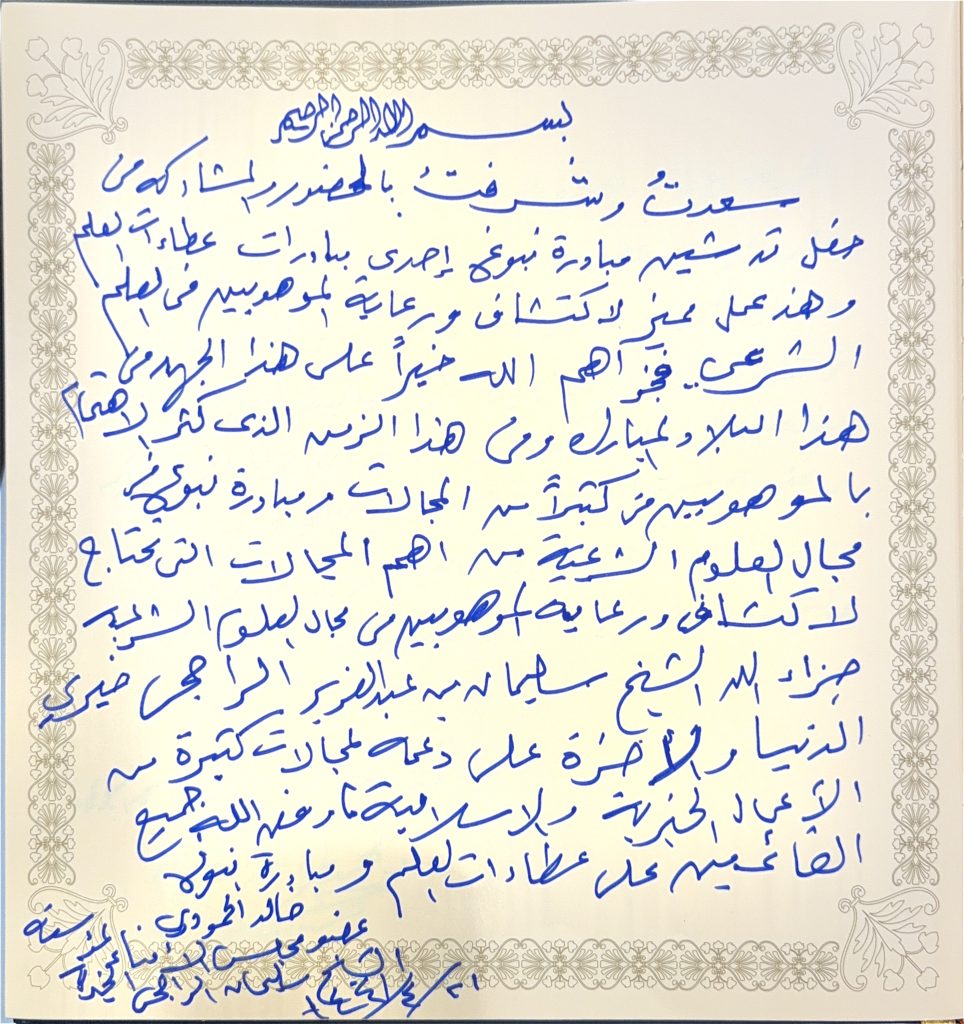 بسم الله الرحمن الرحيم
سعدتُ وتشرفتُ بالحضور والمشاركة في
حفل تدشين مبادرة نبوغ إحدى مبادرات عطاءات العلم
وهذ عمل مميز لاكتشاف ورعاية الموهوبين في العلم
الشرعي .. فجزآهم الله خيراً على هذا الجهد في
هذا البلاد المبارك وفي هذا الزمن الذي كثر الاهتمام
بالموهوبين في كثيراً من المجالات ومبادرة نبوغ في
مجال العلوم الشرعية من أهم المجالات التي تحتاج
لاكتشاف ورعاية الموهوبين في مجال العلوم الشرعية
جزاء الله الشيخ سليمان بن عبدالعزيز الراجحي خيري
الدنيا والآخرة على دعمه لمجالات كثيرة من
الأعمال الخيرية والإسلامية ووفق الله جميع
القائمين على عطاءات العلم ومبادرة نبوغ
خالد الحمودي
عضو مجلس الأمناء مؤسسة
الشيخ سليمان الراجحي الخيرية